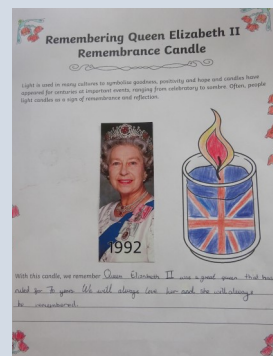 Remembering Queen Elizabeth II
Remembrance Candle
Light is used in many cultures to symbolise goodness, positivity and hope and candles have
appeared for centuries at important events, ranging from celebratory to sombre. Often, people
light candles as a sign of remembrance and reflection.
1992
With this candle, we remember Queen Elizabeth II was a great queen that has
ruled for 70 years We will always love her and she will always
be remembered.